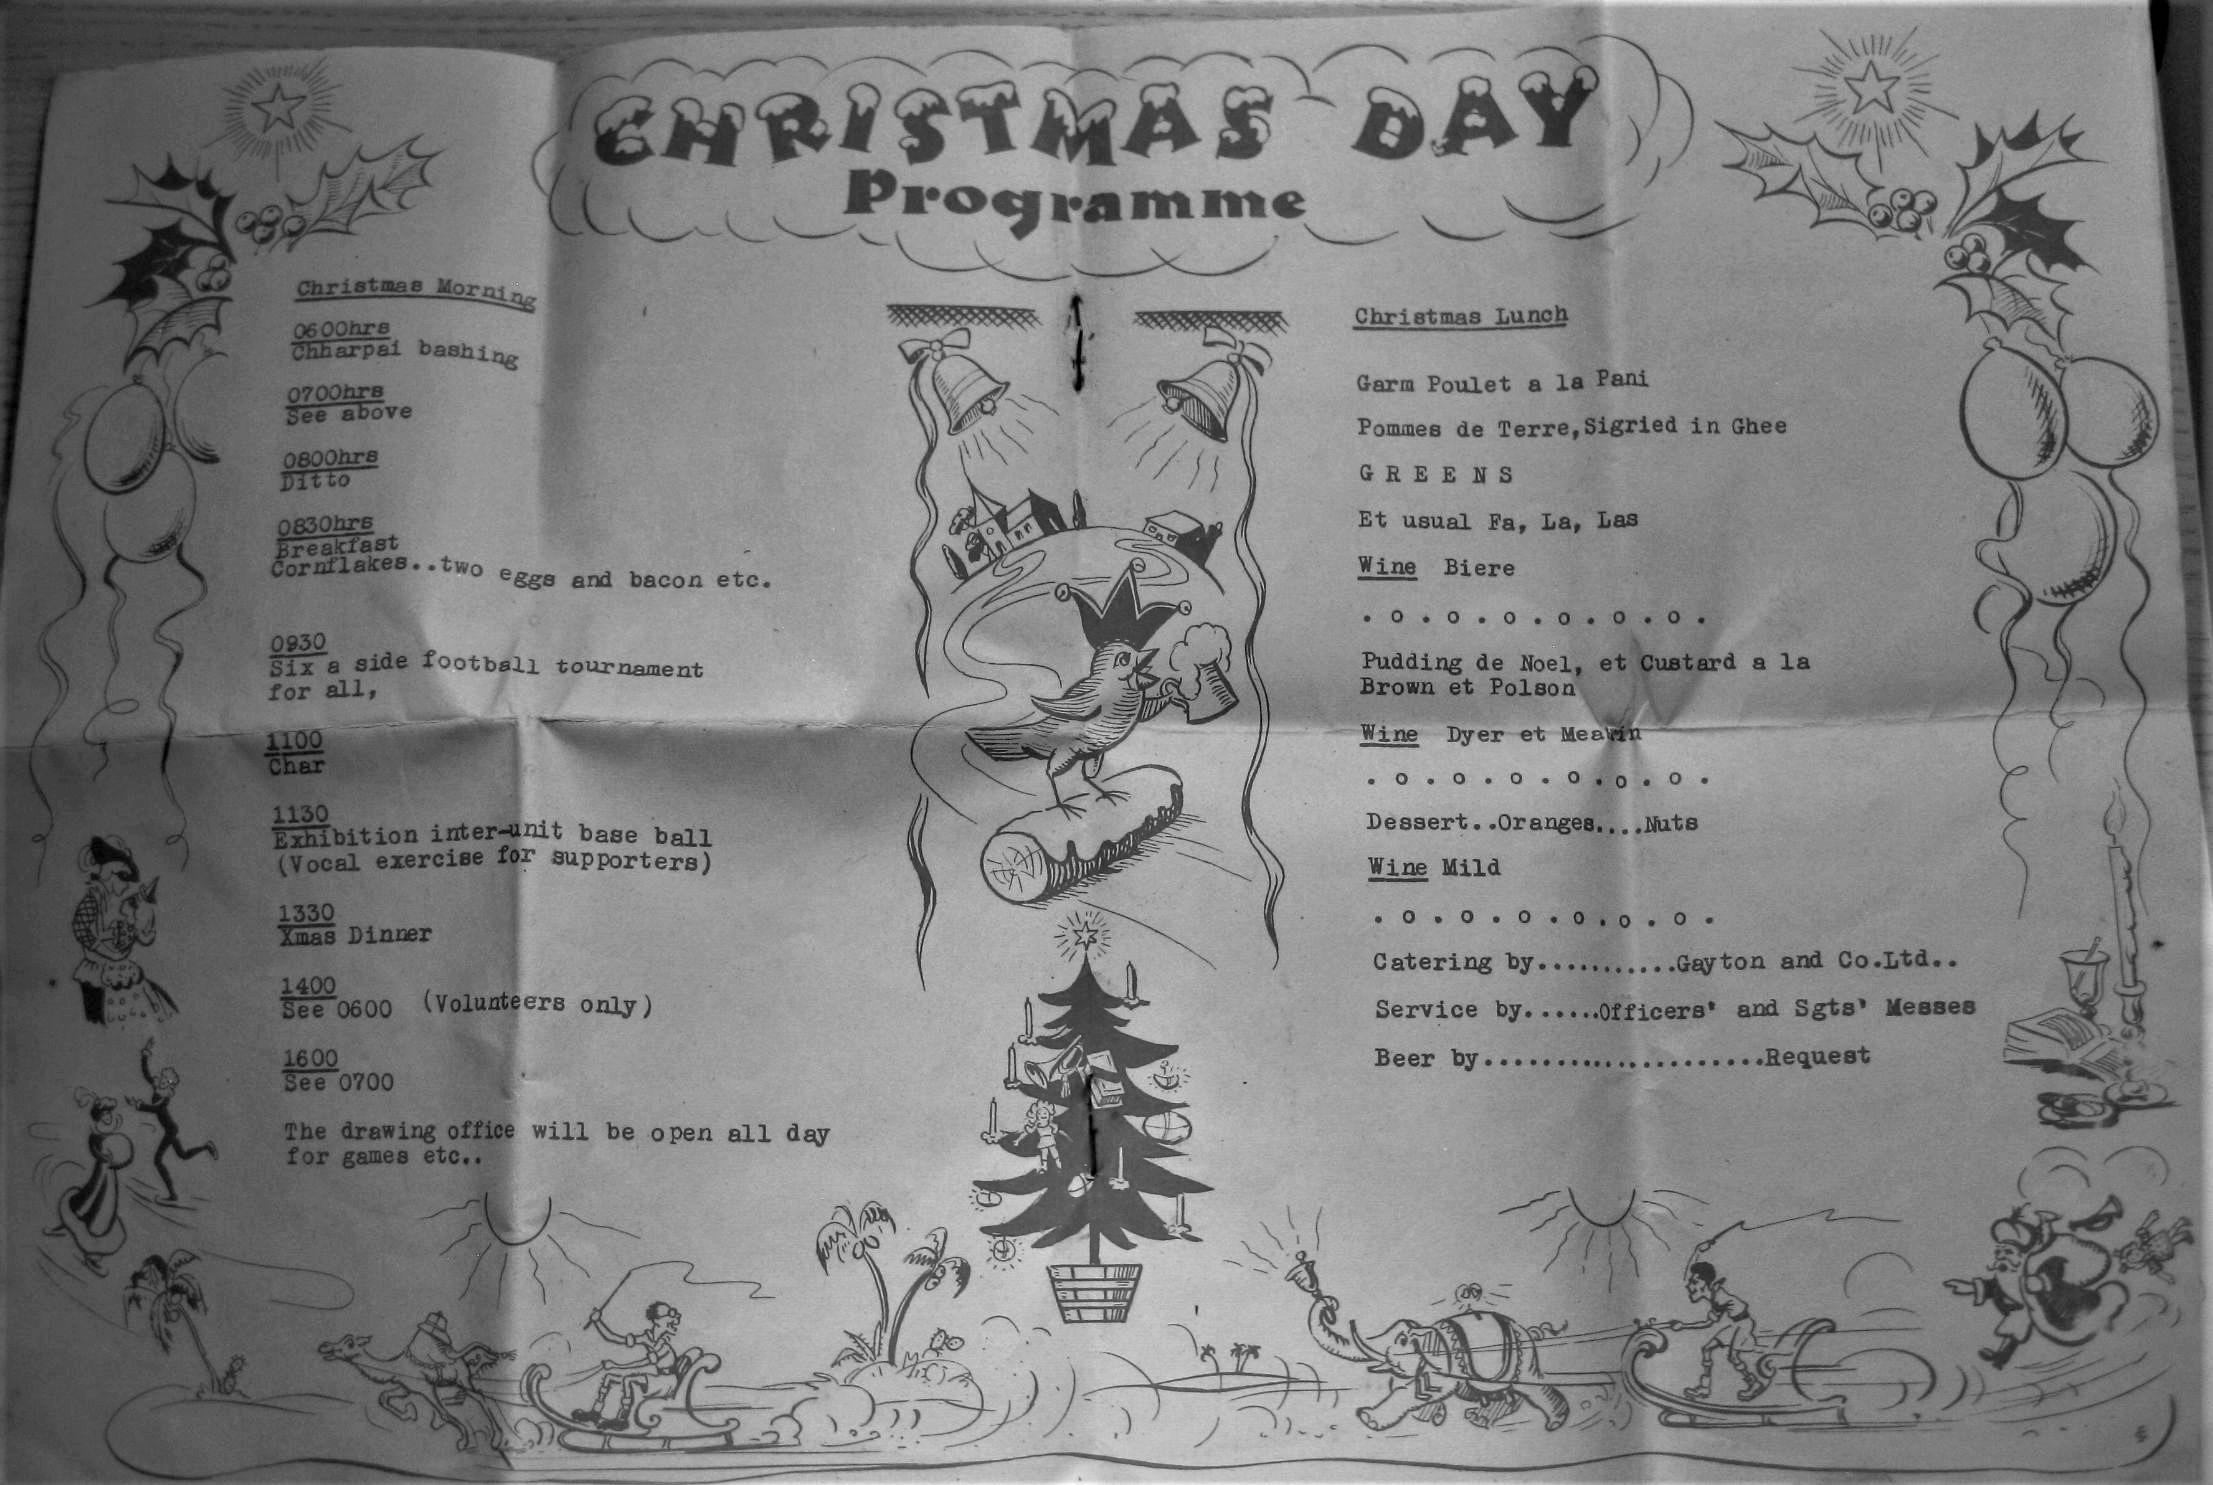 CHRISTMAS DAY
Programme
Christmas Morning
0600hrs
Chharpai bashing
0700hrs
See above
0800hrs
Ditto
0830hrs
Breakfast
Cornflakes..two eggs and bacon etc.
0930
Six a side football tournament
for all,
1100
Char
1130
Exhibition inter-unit base ball
(Vocal exercise for supporters)
1330
Xmas Dinner
1400
See 0600 (Volunteers only)
1600
See 0700
The drawing office will be open all day
for games etc..
Christmas Lunch
Garm Poulet a la Pani
Pommes de Terre,Sigried in Ghee
G R E E N S
Et usual Fa, La, Las
Wine Biere
. o . o . o . o . o . o .
Pudding de Noel, et Custard a la
Brown et Polson
Wine Dyer et Meakin
. o . o . o . o . o . o .
Dessert..Oranges....Nuts
Wine Mild
. o . o . o . o . o . o .
Catering by...........Gayton and Co.Ltd..
Service by......Officers' and Sgts' Messes
Beer by......................Request